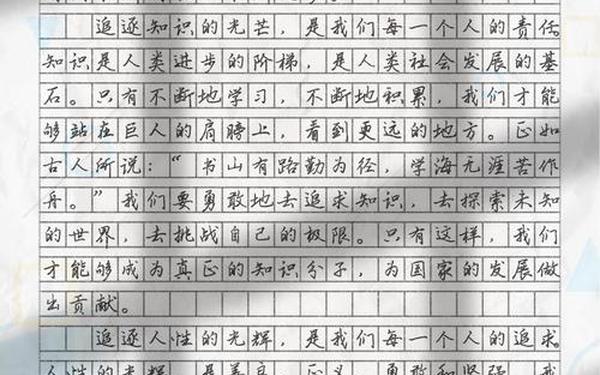 追逐知识的光芒，是我们每一个人的责任。
知识是人类进步的阶梯，是人类社会发展的基
石。只有不断地学习，不断地积累，我们才能
够站在巨人的肩膀上，看到更远的地方。正如
古人所说：“书山有路勤为径，学海无涯苦作
舟。”我们要勇敢地去追求知识，去探索未知
的世界，去挑战自己的极限。只有这样，我们
才能够成为真正的知识分子，为国家的发展做
出贡献。
追逐人性的光辉，是我们每一个人的追求。
人性的光辉，是善良、正义、勇敢和坚强。我